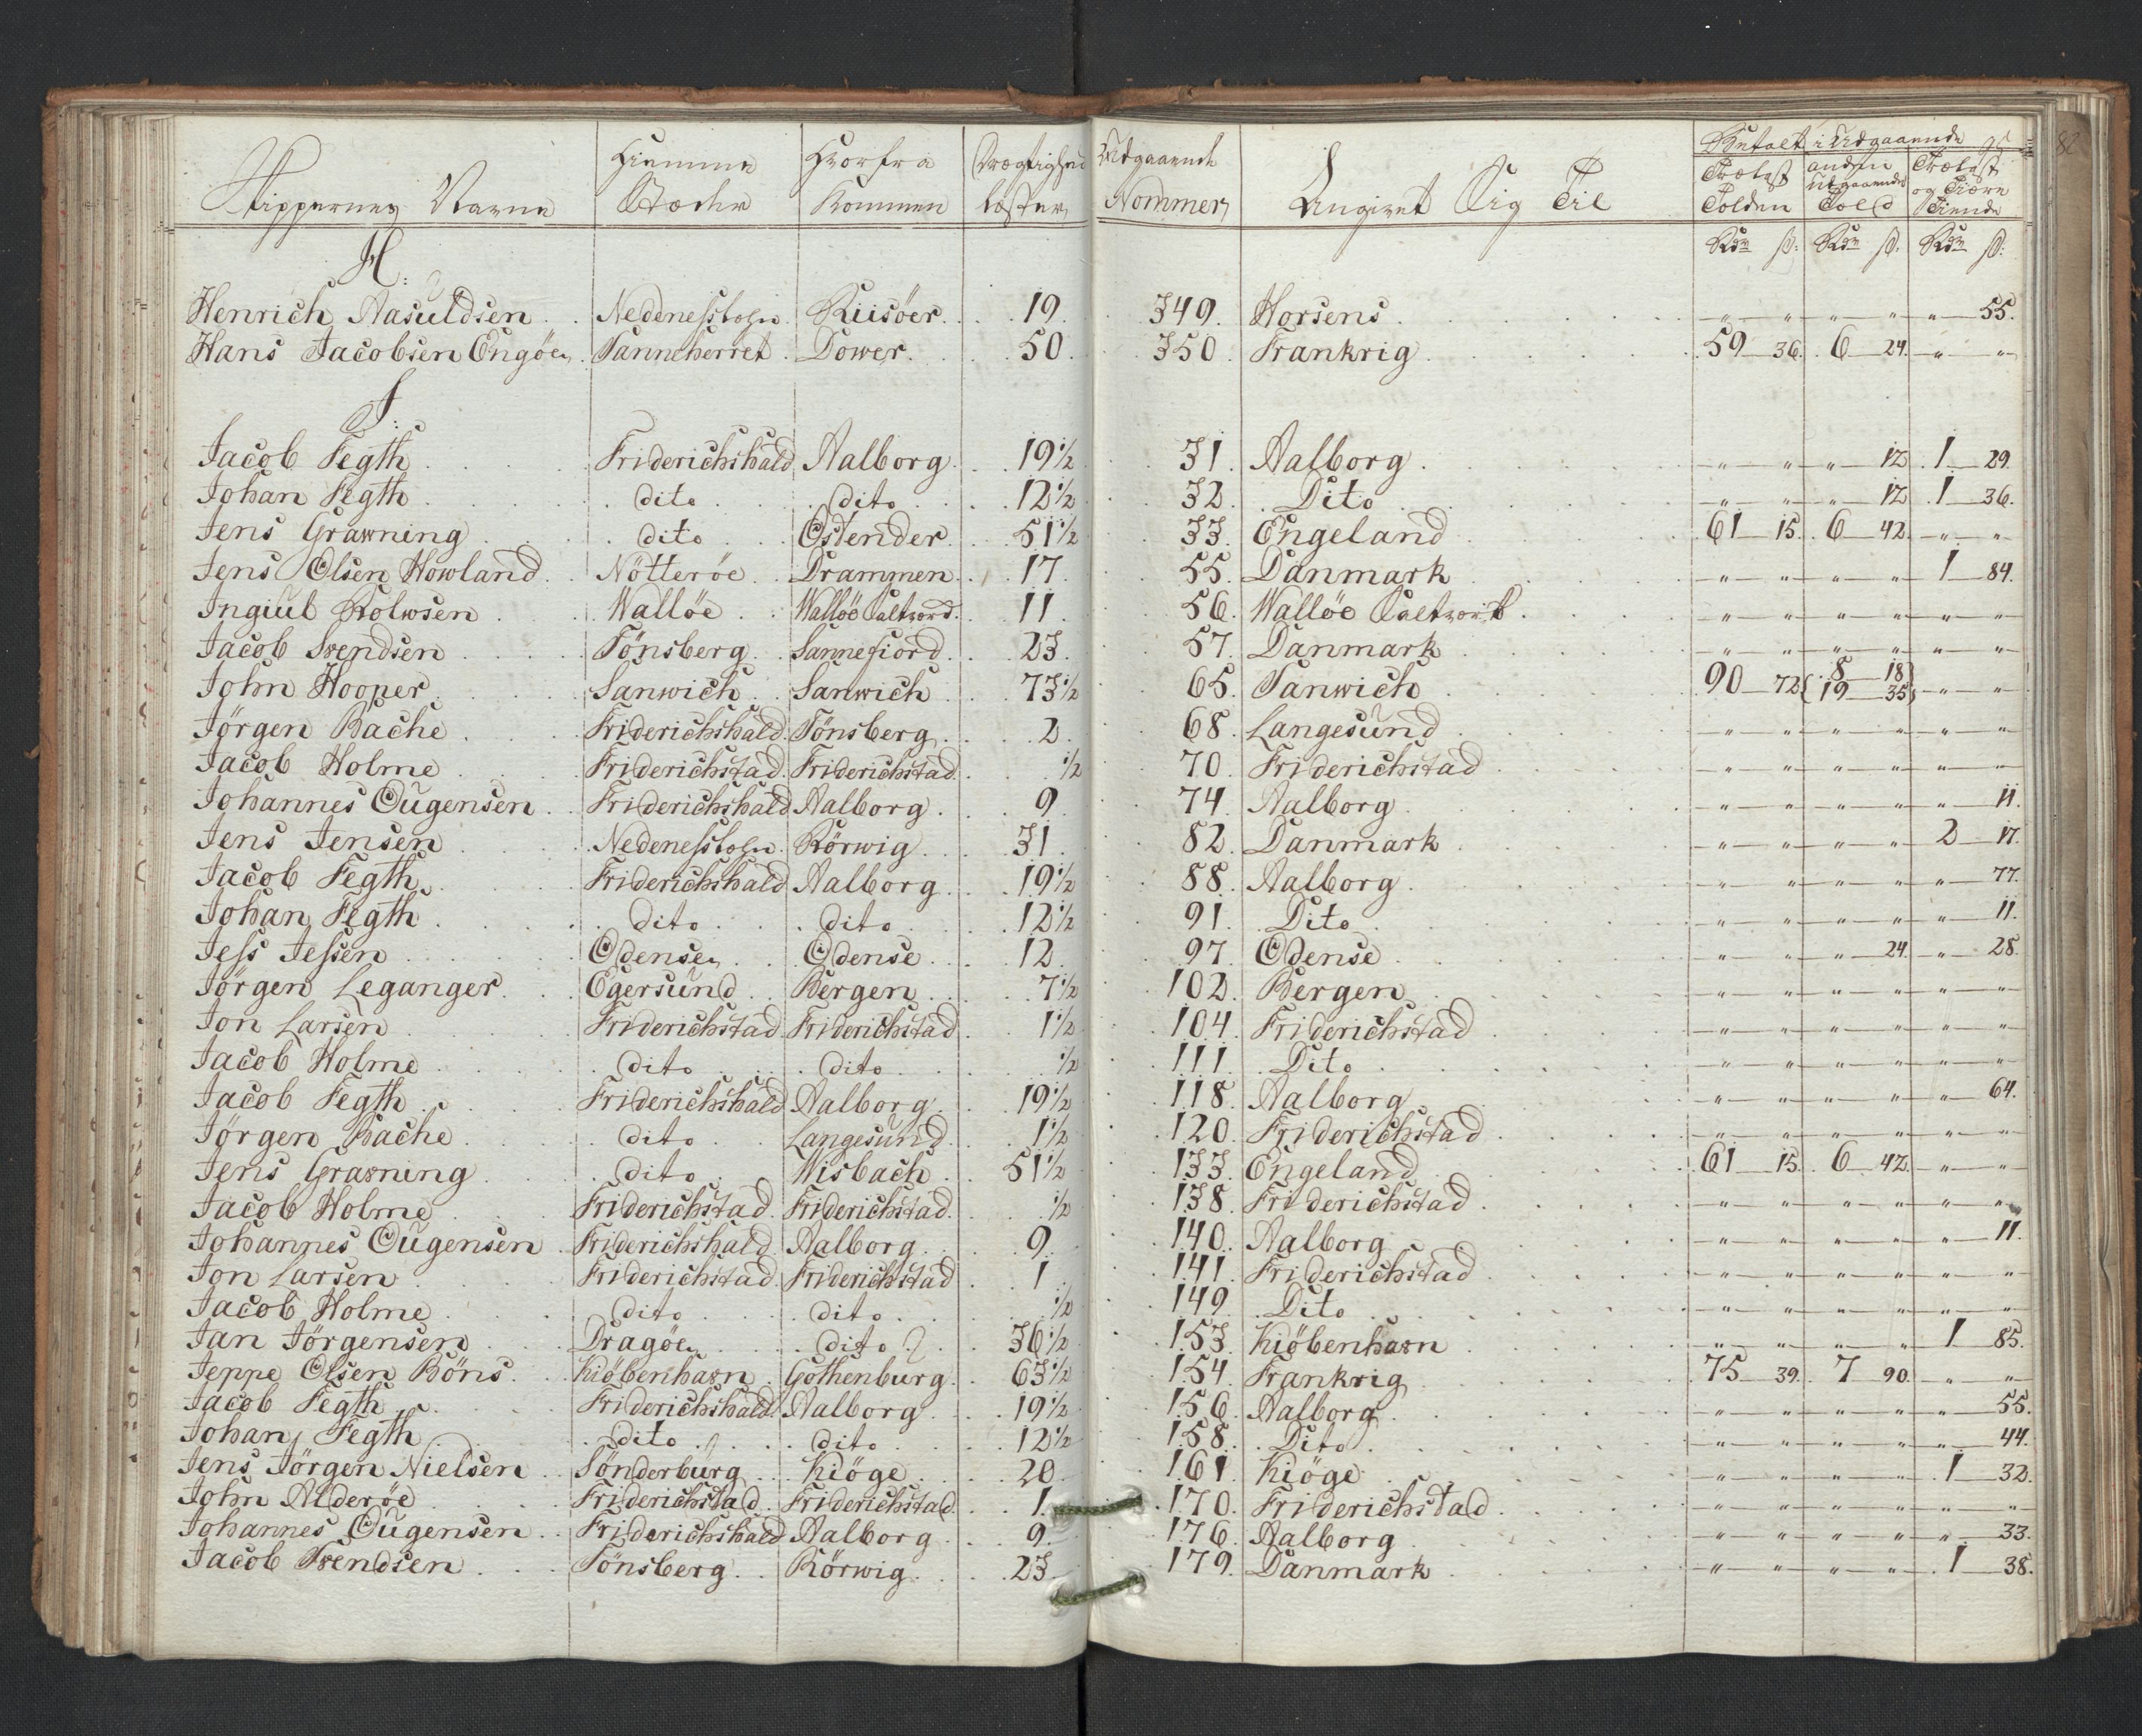 Skippernes Navne | Hiemme Stæder | Hvorfra Kommen | Drægtighed Læster | Udgaaende Nommer | Angivet Sig Til | Betalt i Udgaaende
Trælast Tolden | anden Udgaaende Told | Trælast og Tiære Tiende
Rdr ß: | Rdr ß. | Rdr ß:
H:
Henrich Aasuldsen | Nedenesslehn | Riisöer | 19 | 349. | Horsens | " " | " " | " 55.
Hans Jacobsen Engöe | Sanneherret | Dower | 50 | 350 | Frankrig | 59 36. | 6 24. | " "
J:
Jacob Fegth | Friderichshald | Aalborg | 19 1/2 | 31. | Aalborg | " " | " 12 | 1 29.
Johan Fegth | dito | dito | 12 1/2 | 32. | Dito | " " | " 12 | 1 36.
Jens Grawning | dito | Ostender | 51 1/2 | 33. | Engeland | 61 15. | 6 42. | " "
Jens Olsen Howland | Nötteröe | Drammen | 17 | 55. | Danmark | " " | " " | 1 84.
Ingiul Rolwsen | Wallöe | Wallöe Saltværk | 11 | 56. | Wallöe Saltværk | " " | " " | " "
Jacob Svendsen | Tönsberg | Sannefiord | 23 | 57. | Danmark | " " | " " | " "
John Hooper | Sanwich | Sanwich | 73 1/2 | 65. | Sanwich | 90 72 | 8 18 / 19 35 | " "
Jörgen Bache | Friderichshald | Tönsberg | 2 | 68. | Langesund | " " | " " | " "
Jacob Holme | Friderichstad | Friderichstad | 1/2 | 70. | Friderichstad | " " | " " | " "
Johannes Ougensen | Friderichshald | Aalborg | 9 | 74. | Aalborg | " " | " " | " 11.
Jens Jensen | Nedenesslehn | Körwig | 31 | 82. | Danmark | " " | " " | 2 17.
Jacob Fegth | Friderichshald | Aalborg | 19 1/2 | 88. | Aalborg | " " | " " | " 77.
Johan Fegth | dito | dito | 12 1/2 | 91. | Dito | " " | " " | " 11.
Jess Jessen | Odense | Odense | 12 | 97. | Odense | " " | " 24. | " 28
Jörgen Leganger | Egersund | Bergen | 7 1/2 | 102. | Bergen | " " | " " | " "
Jon Larsen | Friderichstad | Friderichstad | 1 1/2 | 104. | Friderichstad | " " | " " | " "
Jacob Holme | dito | dito | 1/2 | 111. | Dito | " " | " " | " "
Jacob Fegth | Friderichshald | Aalborg | 19 1/2 | 118. | Aalborg | " " | " " | " 64.
Jörgen Bache | dito | Langesund | 1 1/2 | 120. | Friderichstad | " " | " " | " "
Jens Grawning | dito | Wisbach | 51 1/2 | 133. | Engeland | 61 15. | 6 42. | " "
Jacob Holme | Friderichstad | Friderichstad | 1/2 | 138. | Friderichstad | " " | " " | " "
Johannes Ougensen | Friderichshald | Aalborg | 9 | 140. | Aalborg | " " | " " | " 11.
Jon Larsen | Friderichstad | Friderichstad | 1 | 141. | Friderichstad | " " | " " | " "
Jacob Holme | dito | dito | 1/2 | 149. | Dito | " " | " " | " "
Jan Jörgensen | Dragöe | dito | 36 1/2 | 153. | Kiöbenhavn | " " | " " | 1 85.
Jeppe Olsen Böns | Kiöbenhavn | Gothenburg | 63 1/2 | 154. | Frankrig | 75 39. | 7 90. | " "
Jacob Fegth | Friderichshald | Aalborg | 19 1/2 | 156. | Aalborg | " " | " " | " 55.
Johan Fegth | dito | dito | 12 1/2 | 158. | Dito | " " | " " | " 44.
Jens Jörgen Nielsen | Sönderburg | Kiöge | 20 | 161. | Kiöge | " " | " " | 1 32.
John Alderöe | Friderichstad | Friderichstad | 1. | 170. | Friderichstad | " " | " " | " "
Johannes Ougensen | Friderichshald | Aalborg | 9 | 176. | Aalborg | " " | " " | " 33.
Jacob Svendsen | Tönsberg | Körwig | 23 | 179. | Danmark | " " | " " | 1 38.